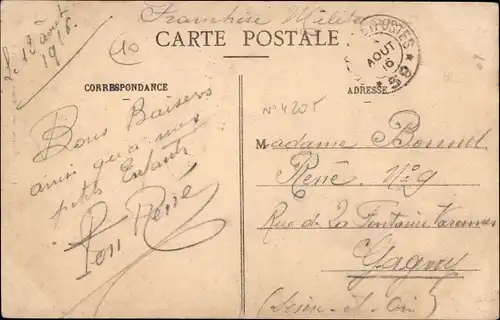 Franchise
CARTE POSTALE
Le 12 août
1916
10
POSTES
AOUT
16
CORRESPONDANCE
ADRESSE
N° 4205
Bons Baisers
ainsi qu'a mes
petits Enfants
Ton René
Madame Bonnel
René N° 9
Rue de La Fontaine
Gagny
(Seine-et-Oise)